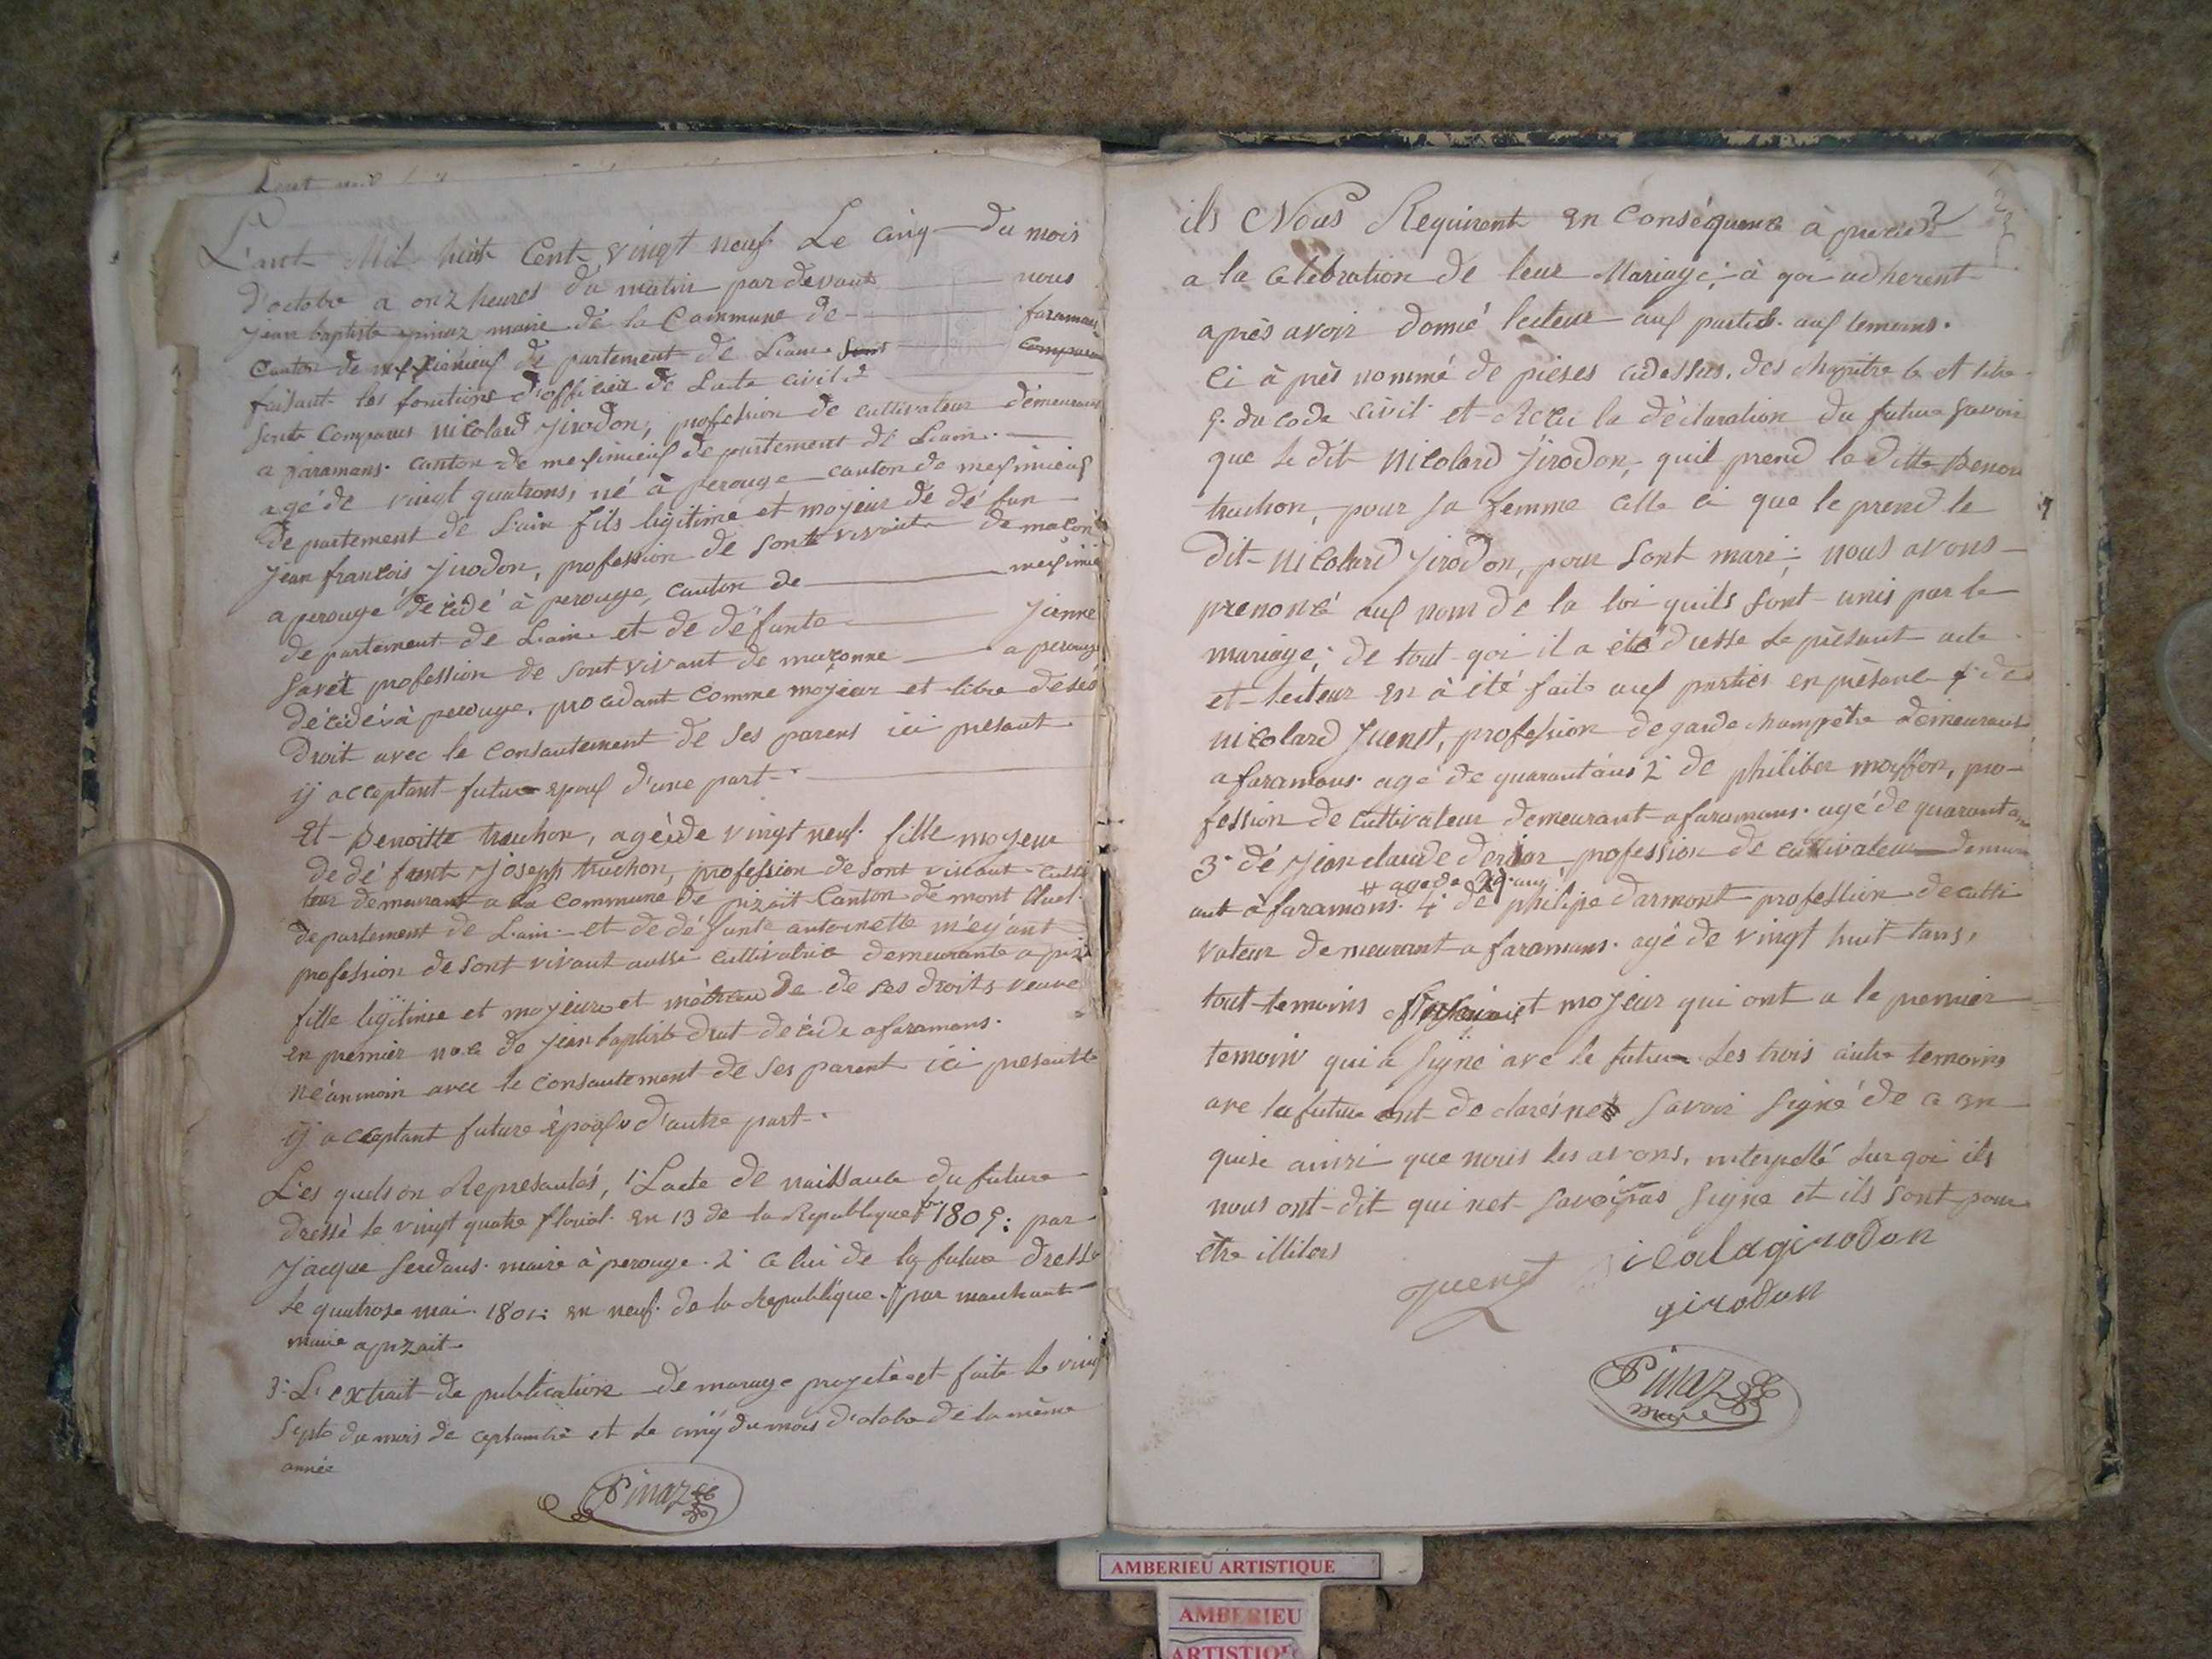 L'ant Mil huit Cent vingt neuf Le cinq du mois
d'octobre a onz heures du matin par devant nous
Jean baptiste pinaz maire de la Commune de faramans
Canton de mesximieux de partement de Lain
faisant les fonctions d'officier de Lacte civil
sont Comparus nicolard Jirodon, profession de cultivateur demeurant
a faramans. canton de meximieux de partement de Lain.
agé de vingt quatrons, né à perouge canton de meximieux
de partement de Lain fils ligitime et mojeur de dé fun
Jean francois Jirodon, profession de sont vivant de macon
a perouge décédé à perouge, canton de meximie
de partement de Lain et de défunte Jeanne
Savet profession de sont vivant de maconne a perouge
décédé à perouge, procedant comme mojeur et libre de ses
droit avec le consantement de ses parens ici present
ij acceptant futur epoux d'une part.
Et Benoitte truchon, agée de vingt neuf. fille mojeur
de dé funt Joseph truchon, profession de sont vivant culti
teur demeurant a la Commune de pizait Canton de mont lluel.
departement de Lain. et de défunte antoinette
profession de sont vivant aussi cultivatrice demeurante a piz
fille ligitime et mojeure et de de ses droits veuve
en premier noce de Jean baptiste drut décédé a faramans.
néanmoin avec le consantement de ses parent ici presante
ij acceptant future épouse d'autre part.
Les quels on Represantés, 1° Lacte de naissance du future
dressé le vingt quatre florial. en 13 de la Republique 1805: par
Jacque Serdans. maire à perouge. 2° celui de la future dressé
le quatorse mai. 1801: en neuf de la Republique. par marchant
maire a pizait.
3° L'extrait de publication de mariage projeté et faite le vingt
septe du mois de ceptambre et le cinq du mois d'octobre de la même
année
Pinaz
ils Nous Requirent en Conséquence à procede
a la celebration de leur Mariage; à qoi adherent
après avoir donné lecteur aux parties. aux temoins.
ci à près nommé de pièses cidessus. des chapitre 6 et titre
5. du code civil et Recu la déclaration du future savoir
que le dit nicolard Jirodon, quil prend la ditte Benoi
truchon, pour sa femme celle ci que le prend le
dit nicolard Jirodon, pour sont mari; nous avons
prenoncé aux nom de la loi quils sont unis par le
mariage; de tout qoi il a été dresse le présant acte
et lecteur en à été faite aux parties en présance de
nicolard Juenet, profession de garde champetre demeurant
a faramans. agé de quarant'ans 2° de philiber moisson, pro-
fession de cultivateur demeurant a faramans. agé de quarant an
3° dé Jean claude profession de cultivateur demeur
# age de ans
ant à faramans. 4° de philipe darmont profession de culti
vateur demeurant a faramans. agé de vingt huit tans,
tout temoins et mojeur qui ont a le premier
temoin qui a signe ave le future Les trois autre temoins
ave la future ont declarés ne savoir signé de ce en
quise ainsi que nous les avons. interpellé sur qoi ils
nous ont dit qui net savoi pas signe et ils sont pour
etre illiters
Juenet
icolagirodon
girodon
Pinaz
maire
AMBERIEU ARTISTIQUE
AMBERIEU
ARTISTIQUE